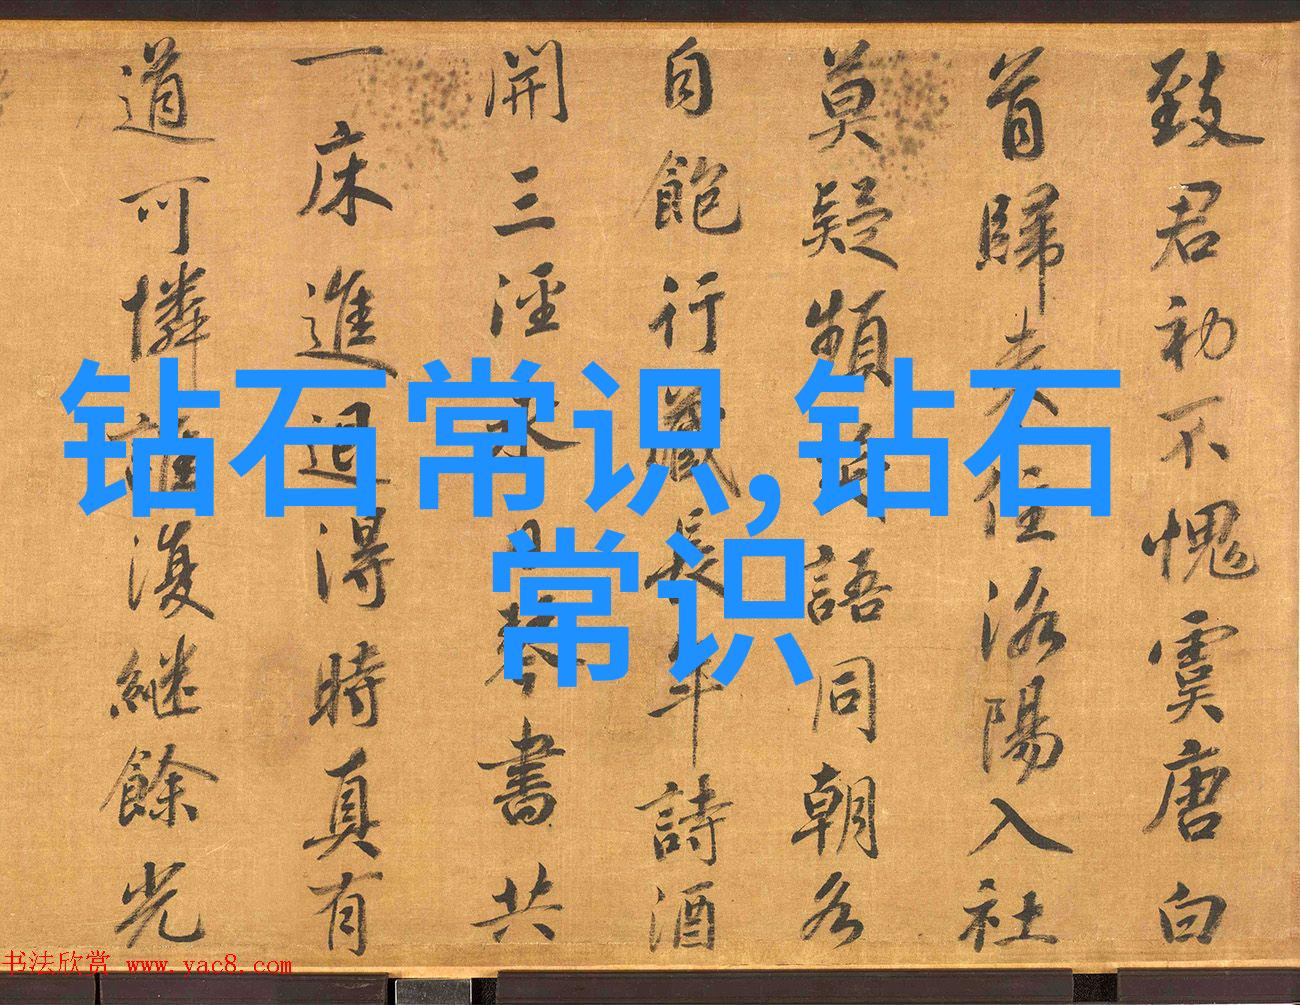 致君初不愧虞唐白
首歸来住洛陽入社
莫疑頻語同朝各
自飽行藏長年詩酒
開三涇永日琴書共
一床進退得時真有
道可憐誰復繼餘光
钻石常识,钻石
常识
书法欣赏 www.yac8.com